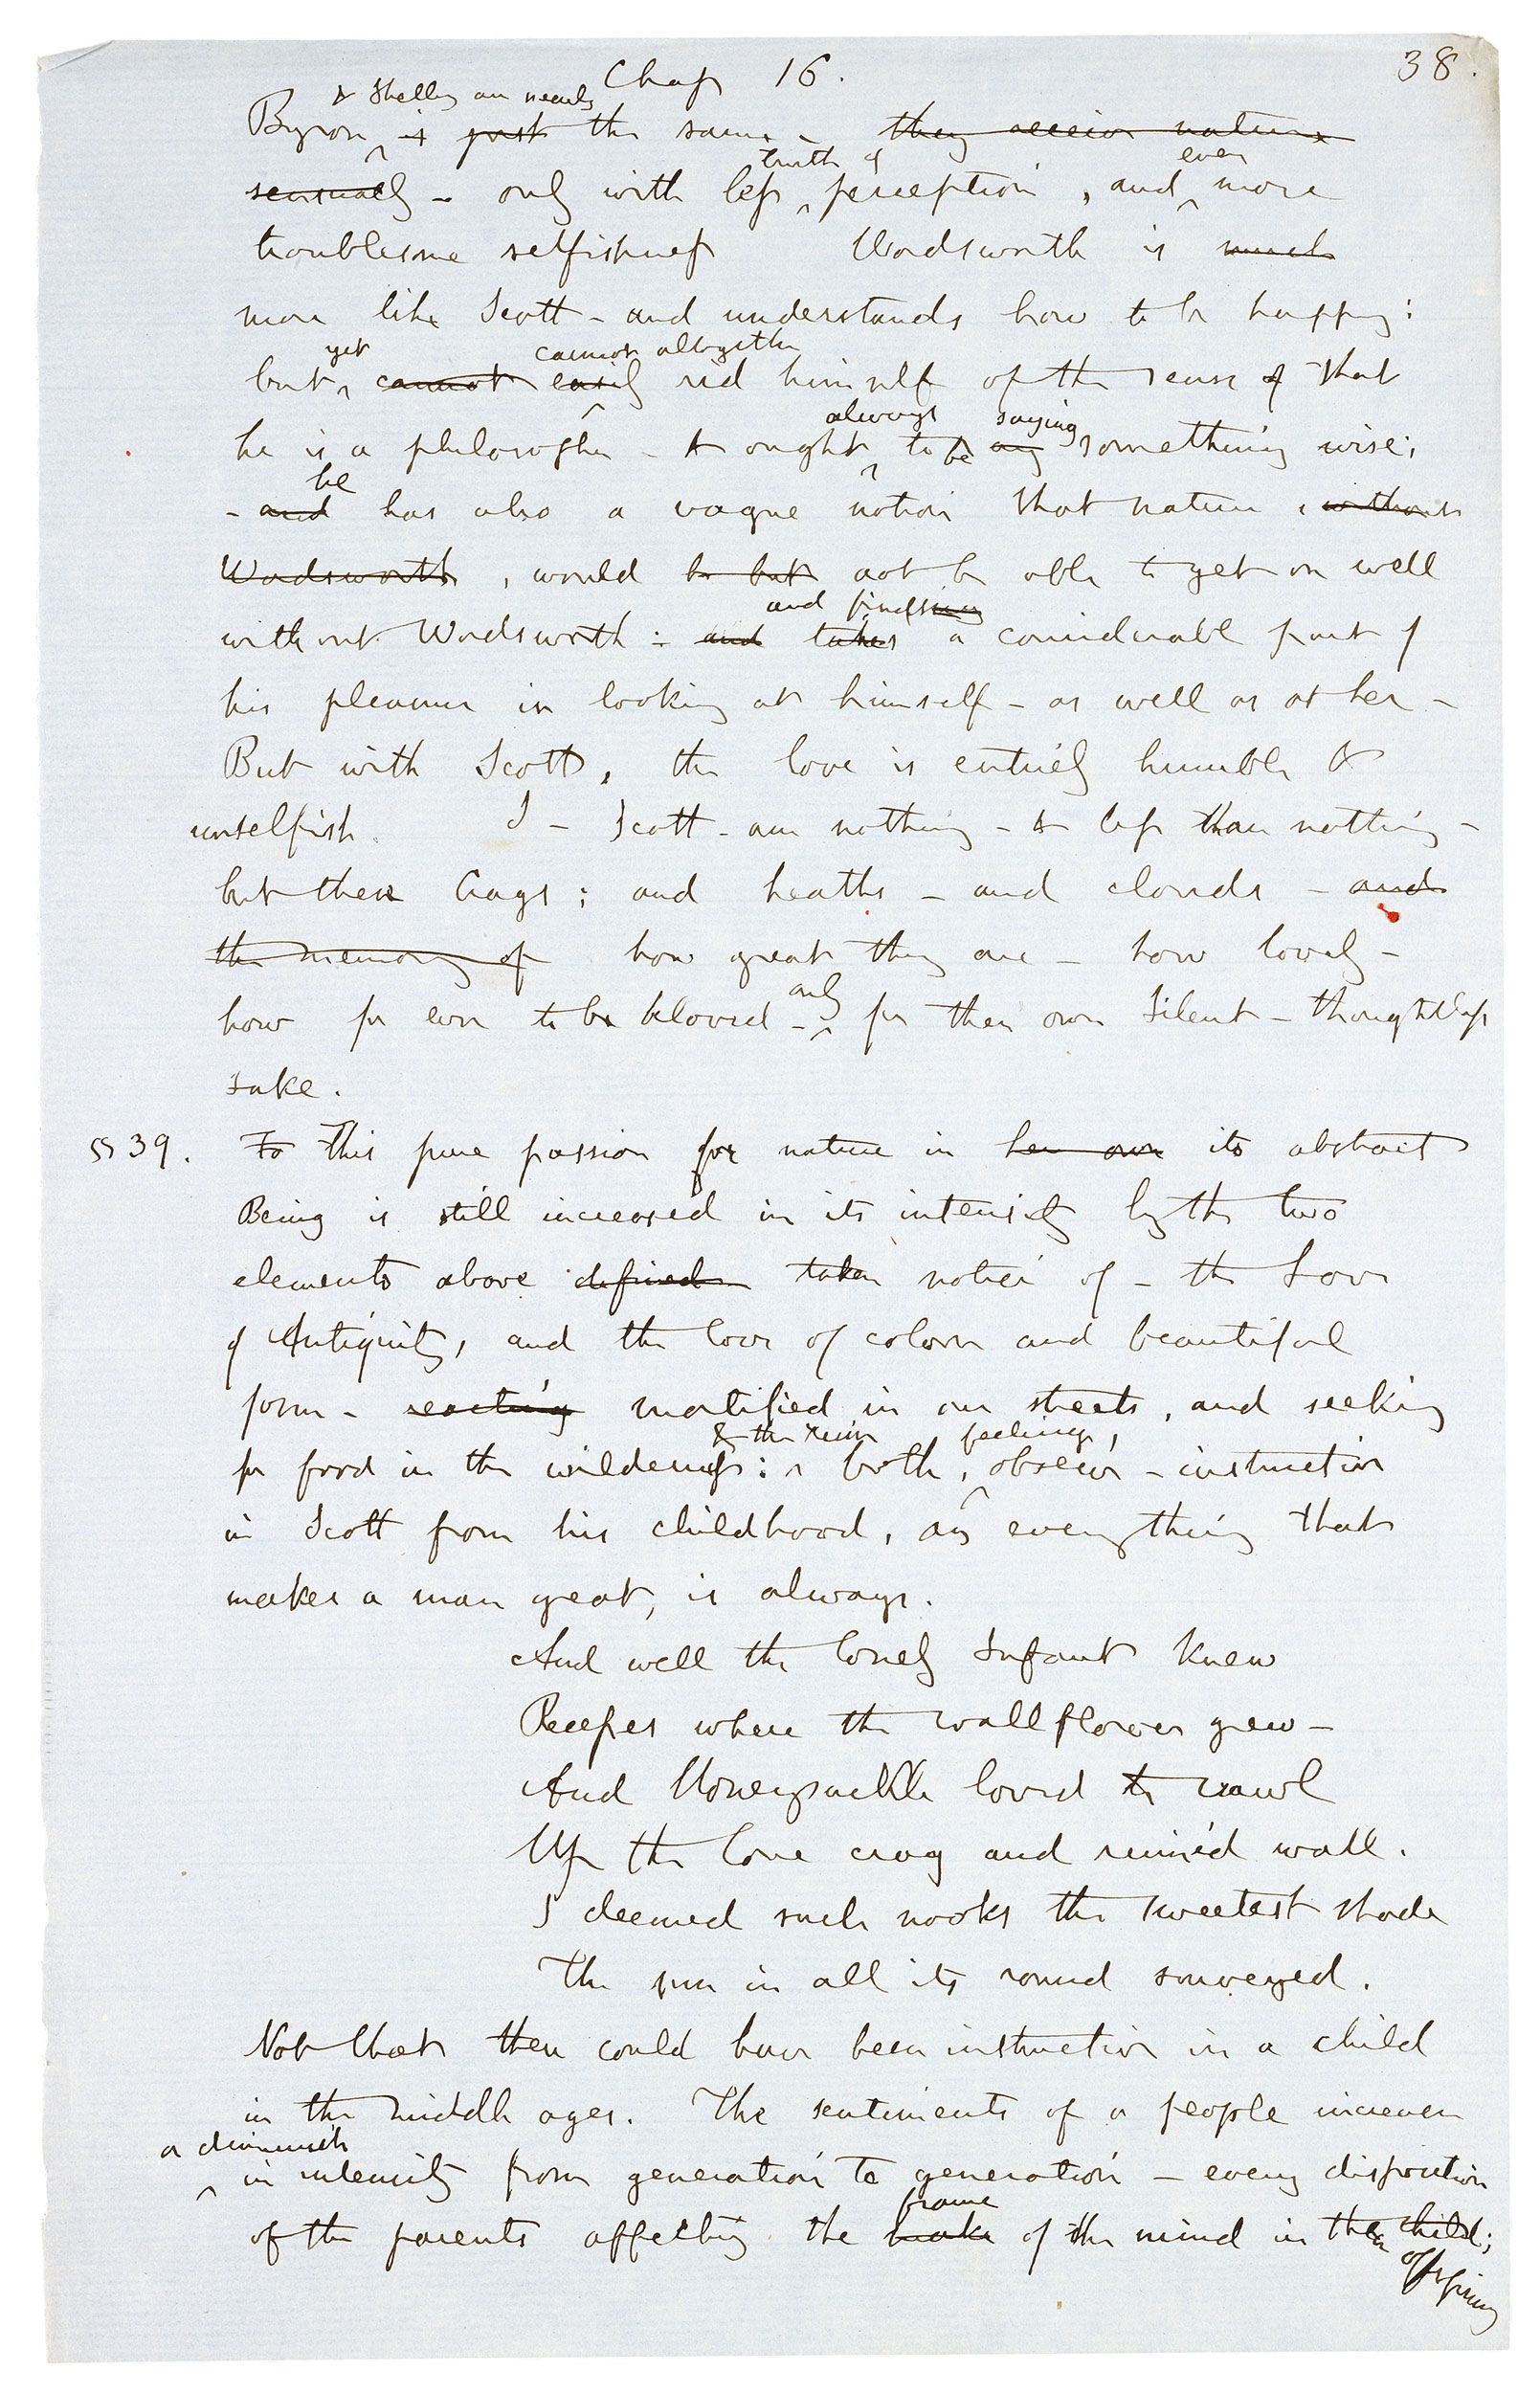 Chap 16. 38.
& Shelley are nearly
Byron is just the same - they receive nature
truth of even
sensually - only with less perception, and more
troublesome selfishness Wordsworth is much
more like Scott - and understands how to be happy:
yet cannot altogether
but cannot easily rid himself of the sense of that
always saying
he is a philosopher - & ought to be say something wise;
he
- and has also a vague notion that nature, without
Wordsworth, would be but not be able to get on well
and finds
without Wordsworth: and takes a considerable part of
his pleasure in looking at himself - as well as at her -
But with Scott, the love is entirely humble &
unselfish. I - Scott - am nothing - & less than nothing -
but these Crags; and heaths - and clouds - and
the memory of how great they are - how lovely -
only
how for ever to be beloved - for their own silent - thoughtless
sake.
§§ 39. To This pure passion for nature in her own its abstract
Being is still increased in its intensity by the two
elements above defined taken notice of - the Love
of Antiquity, and the love of colour and beautiful
form - reacting mortified in our streets, and seeking
& the ruin feelings,
for food in the wilderness: both, observe - instinctive
in Scott from his childhood, as everything that
makes a man great, is always.
And well the lonely Infant knew
Recesses where the wallflower grew -
And Honeysuckle loved to crawl
Up the lone crag and ruin'd wall.
I deemed such nooks the sweetest shade
The sun in all its round surveyed.
Not that there could have been instinctive in a child
in the middle ages. The sentiments of a people increase
or diminish
in intensity from generation to generation - every disposition
frame
of the parents affecting the make of the mind in their child;
offspring